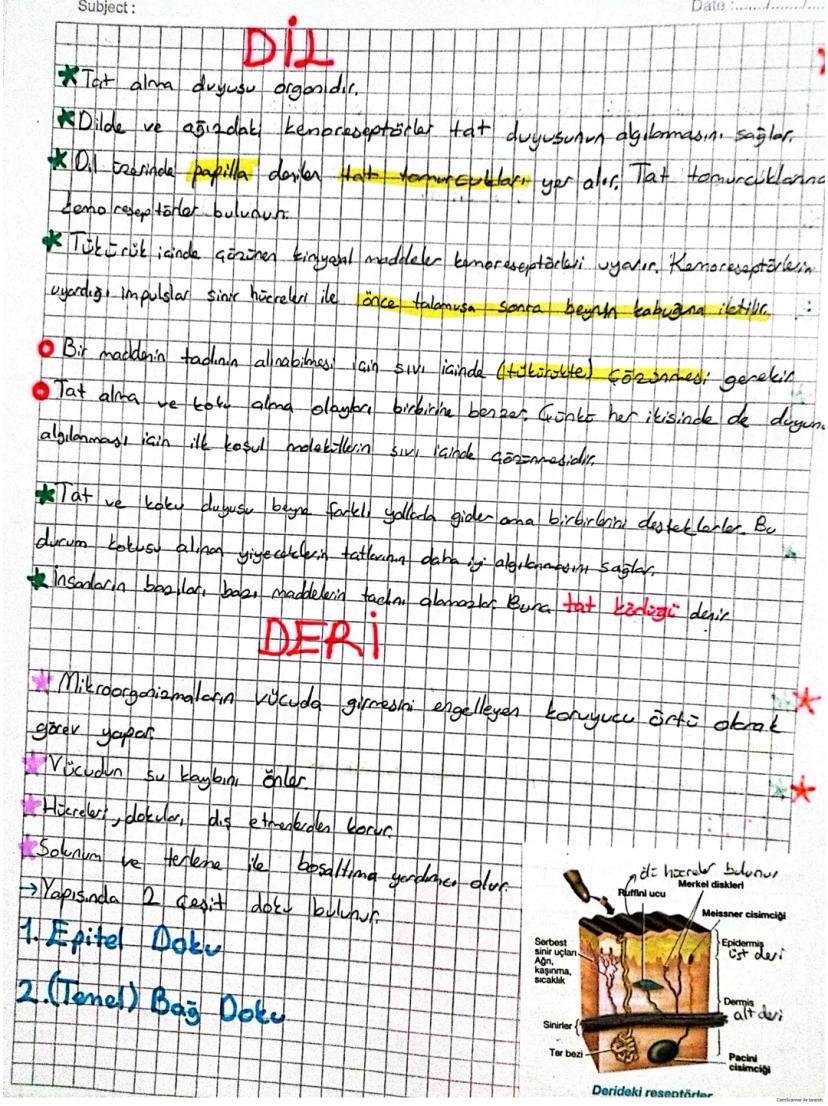 Subject :
Date :....../....../......
DİL
Tat alma duyusu organıdır.
Dilde ve ağızdaki kemoreseptörler tat duyusunun algılanmasını sağlar.
Dil üzerinde papilla denilen tat tomurcukları yer alır. Tat tomurcuklarına
kemoreseptörler bulunur.
Tükürük içinde çözünen kimyasal maddeler kemoreseptörleri uyarır. Kemoreseptörlerin
uyardığı impulslar sinir hücreleri ile önce talamusa sonra beynin kabuğuna iletilir.
Bir maddenin tadının alınabilmesi için sıvı içinde (tükürükte) çözünmesi gerekir.
Tat alma ve koku alma olayları birbirine benzer. Çünkü her ikisinde de duyunu
algılanması için ilk koşul moleküllerin sıvı içinde çözünmesidir.
Tat ve koku duyusu beyne farklı yollarla gider ama birbirlerini desteklerler. Bu
durum kokusu alınan yiyeceklerin tatlarının daha iyi algılanmasını sağlar.
İnsanların bazıları bazı maddelerin tadını alamazlar. Buna tat körlüğü denir
DERİ
Mikroorganizmaların vücuda girmesini engelleyen koruyucu örtü olarak
görev yapar.
Vücudun su kaybını önler.
Hücreleri, dokuları dış etmenlerden korur.
Solunum ve terleme ile boşaltıma yardımcı olur.
→ Yapısında 2 çeşit doku bulunur.
1. Epitel Doku
2. (Temel) Bağ Doku
ölü hücreler bulunur
Ruffini ucu
Merkel diskleri
Meissner cisimciği
Serbest
sinir uçları
Ağrı,
kaşınma,
sıcaklık
Epidermis
üst deri
Dermis
alt deri
Sinirler
Ter bezi
Pacini
cisimciği
Derideki reseptörler
CamScanner ile tarandı